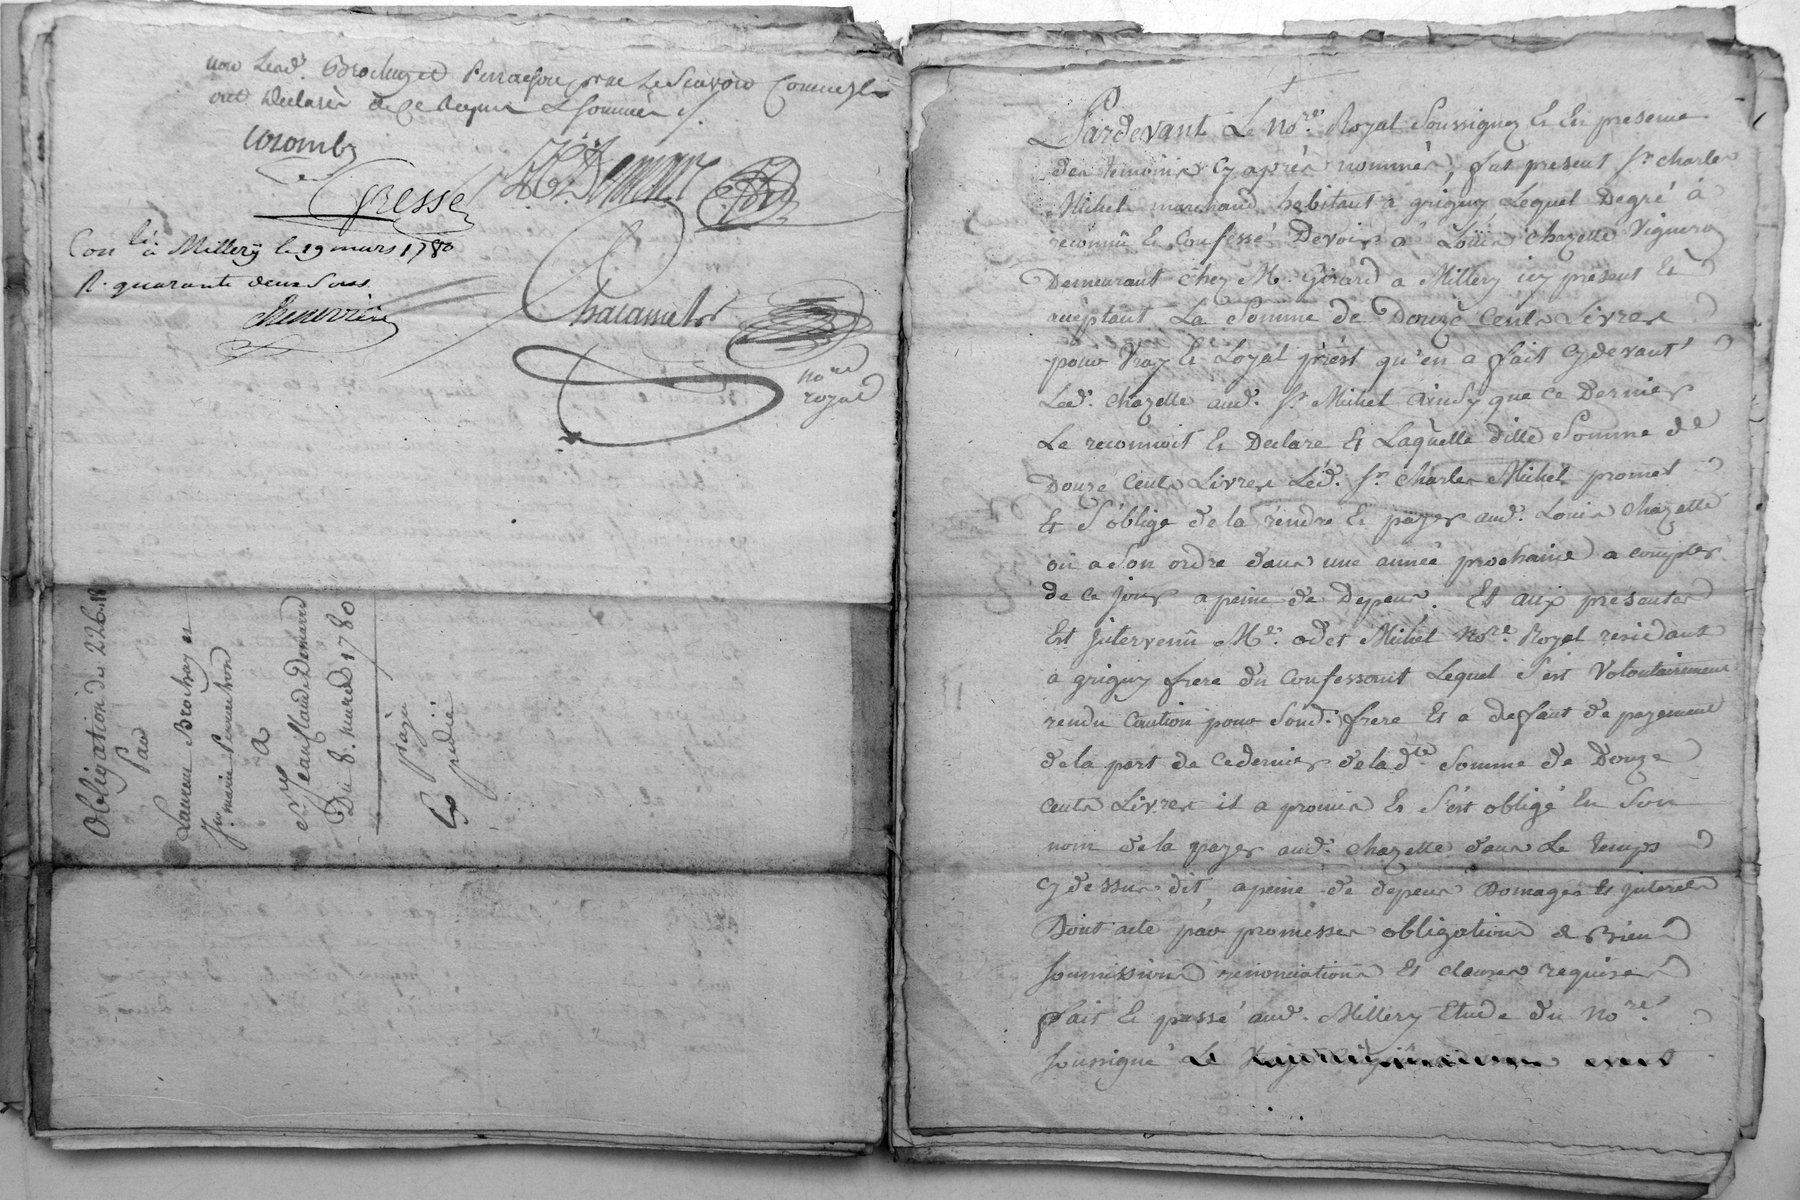 non Lesd. Brochay et Perrachon pour ne Le Scavoir Comme ils
ont Déclaré de Ce Requis & sommés ./.
Colomb
Gresse
Con.lé a Millery le 19 mars 1780
R. quarante deux Sous
Chenevrière
Chacamel
no.re
royal
Obligation de 226.
Par
Laurent Brochay et
marie Perrachon
A
Sr. Jean Claude Demard
Du 8. mars 1780
Expédié
Pardevant Le No.re Royal Soussigné Et En presence
des temoins cy après nommés, fut present Sr. Charles
Mihel marchand habitant a grigny Lequel Degré à
reconnû Et Confessé Devoir a Loüis Chazelle Vigneron
Demeurant chez M. Girard a Millery icy présent Et
acceptant La Somme de Douze Cents Livres
pour Vray Et Loyal prest qu'en a fait cydevant
Led. Chazelle aud. Sr. Mihel Ainsy que ce Dernier
Le reconnoit Et Declare Et Laquelle ditte Somme de
Douze Cents Livres Led. Sr. Charles Mihel promet
Et S'oblige de la rendre Et payer aud. Louis Chazelle
ou a Son ordre dans une année prochaine a compter
de ce jour a peine de Depens. Et aux presentes
Est Intervenû Me. odet Mihel No.re Royal residant
a grigny frere du Confessant Lequel s'est Volontairement
rendu Caution pour Sond. frere Et a defaut de payement
de la part de ce dernier de la d.te Somme de Douze
Cents Livres il a promis Et S'est obligé En Son
nom de la payer aud. Chazelle dans Le temps
cy dessus dit, a peine de depens Domages Et Interets
Dont acte par promesses obligations de Biens
soumissions renonciations Et clauses requises
fait Et passé aud. Millery Etude du No.re
soussigné Le